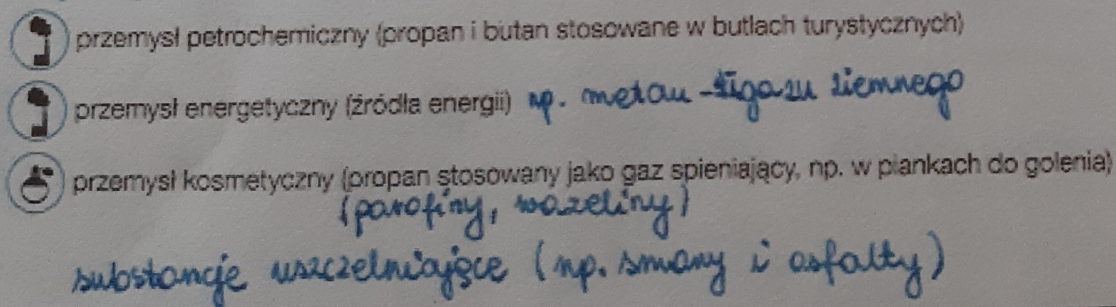 przemysł petrochemiczny (propan i butan stosowane w butlach turystycznych)
przemysł energetyczny (źródła energii) np. metan - gazu ziemnego
przemysł kosmetyczny (propan stosowany jako gaz spieniający, np. w piankach do golenia)
(parafiny, wazeliny)
substancje uszczelniające (np. smary i asfalty)